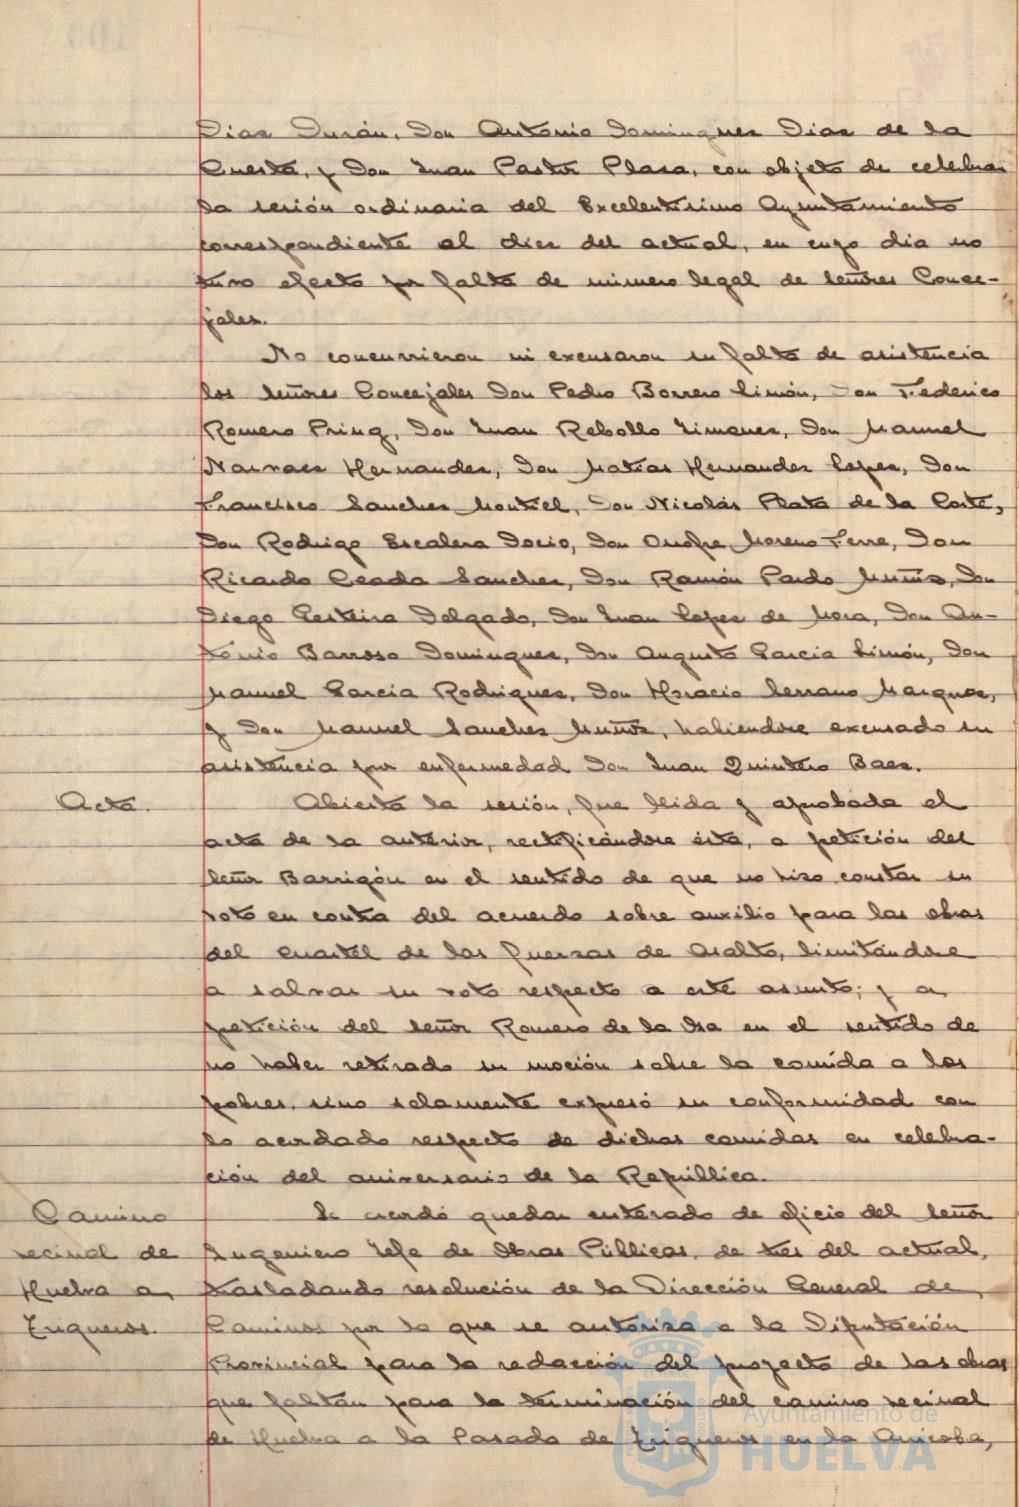 Diaz Durán, Don Antonio Dominguez Diaz de la
Cuesta, y Don Juan Pastor Plaza, con objeto de celebrar
la sesión ordinaria del Excelentísimo Ayuntamiento
correspondiente al diez del actual, en cuyo dia no
tuvo efecto por falta de número legal de señores Conce-
jales.
No concurrieron ni excusaron su falta de asistencia
los señores Concejales Don Pedro Borrero Limón, Don Federico
Romero Pring, Don Juan Rebollo Jimenez, Don Manuel
Narvaez Hernandez, Don Matias Hernandez Lopez, Don
Francisco Sanchez Montiel, Don Nicolás Plata de la Corte,
Don Rodrigo Escalera Docio, Don Onofre Moreno Ferre, Don
Ricardo Ceada Sanchez, Don Ramón Pardo Muñoz, Don
Diego Delgado, Don Juan Lopez de Mora, Don An-
tonio Barroso Dominguez, Don Augusto Garcia Limón, Don
Manuel Garcia Rodriguez, Don Horacio Serrano Marquez,
y Don Manuel Sanchez Muñoz, habiendose excusado su
asistencia por enfermedad Don Juan Quintero Baez.
Acta.
Abierta la sesión, fue leida y aprobada el
acta de la anterior, rectificándose ésta, a petición del
señor Barrigón en el sentido de que no hizo constar su
voto en contra del acuerdo sobre auxilio para las obras
del cuartel de las fuerzas de Asalto, limitándose
a salvar su voto respecto a este asunto; y a
petición del señor Romero de la Osa en el sentido de
no haber retirado su moción sobre la comida a los
pobres, sino solamente expresó su conformidad con
lo acordado respecto de dichas comidas en celebra-
ción del aniversario de la República.
Camino
vecinal de
Huelva a
Trigueros.
Se acordó quedar enterado de oficio del señor
Ingeniero Jefe de Obras Públicas, de tres del actual,
trasladando resolución de la Dirección General de
Caminos por la que se autoriza a la Diputación
Provincial para la redacción del proyecto de las obras
que faltan para la terminación del camino vecinal
de Huelva a la Pasada de Trigueros en la Anicoba,
Ayuntamiento de
HUELVA